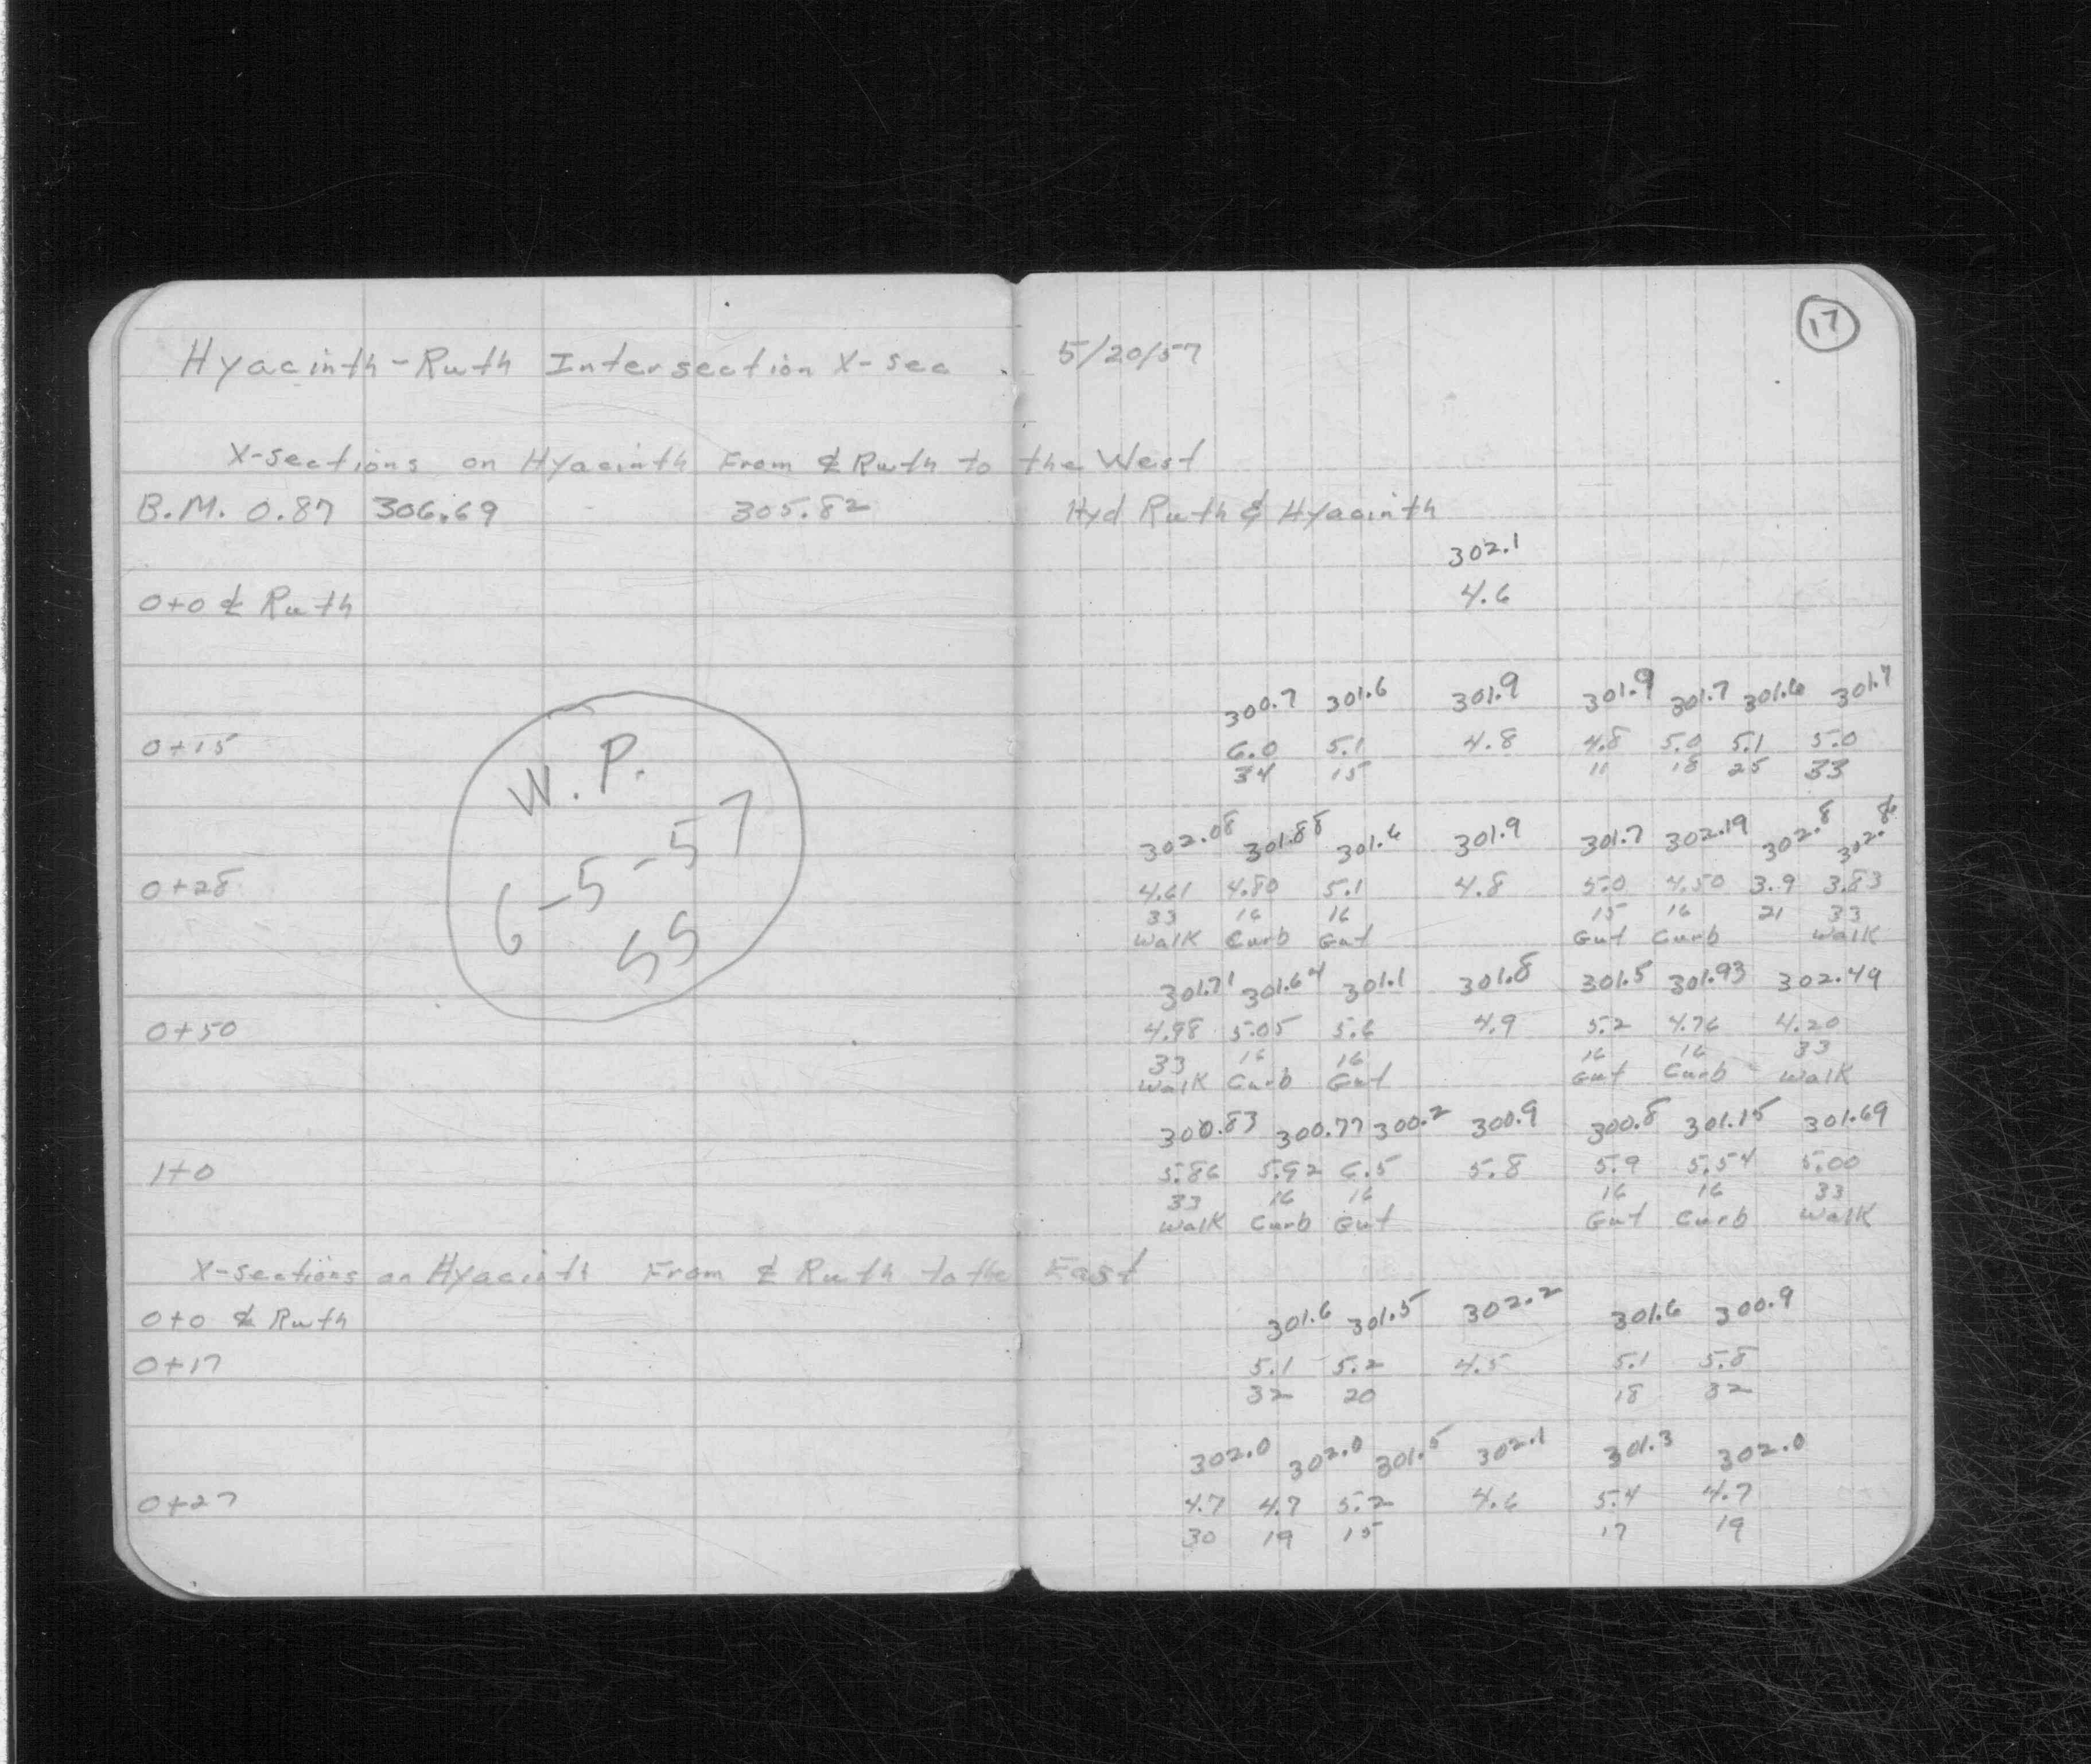 17
Hyacinth-Ruth Intersection X-sec. 5/20/57
X-sections on Hyacinth From ℄ Ruth to the West
B.M. 0.87 306.69 - 305.82 Hyd Ruth & Hyacinth
302.1
0+0 ℄ Ruth 4.6
300.7 301.6 301.9 301.9 301.7 301.6 301.7
0+15 6.0 5.1 4.8 4.8 5.0 5.1 5.0
34 15 11 18 25 33
W.P.
6-5-57
55
302.08 301.88 301.6 301.9 301.7 302.19 302.8 302.86
0+28 4.61 4.80 5.1 4.8 5.0 4.50 3.9 3.83
33 16 16 15 16 21 33
Walk Curb Gut Gut Curb Walk
301.71 301.64 301.1 301.8 301.5 301.93 302.49
0+50 4.98 5.05 5.6 4.9 5.2 4.76 4.20
33 16 16 16 16 33
Walk Curb Gut Gut Curb Walk
300.83 300.77 300.2 300.9 300.8 301.15 301.69
1+0 5.86 5.92 6.5 5.8 5.9 5.54 5.00
33 16 16 16 16 33
Walk Curb Gut Gut Curb Walk
X-sections on Hyacinth From ℄ Ruth to the East
0+0 ℄ Ruth 301.6 301.5 302.2 301.6 300.9
0+17 5.1 5.2 4.5 5.1 5.8
32 20 18 32
302.0 302.0 301.5 302.1 301.3 302.0
0+27 4.7 4.7 5.2 4.6 5.4 4.7
30 19 15 17 19